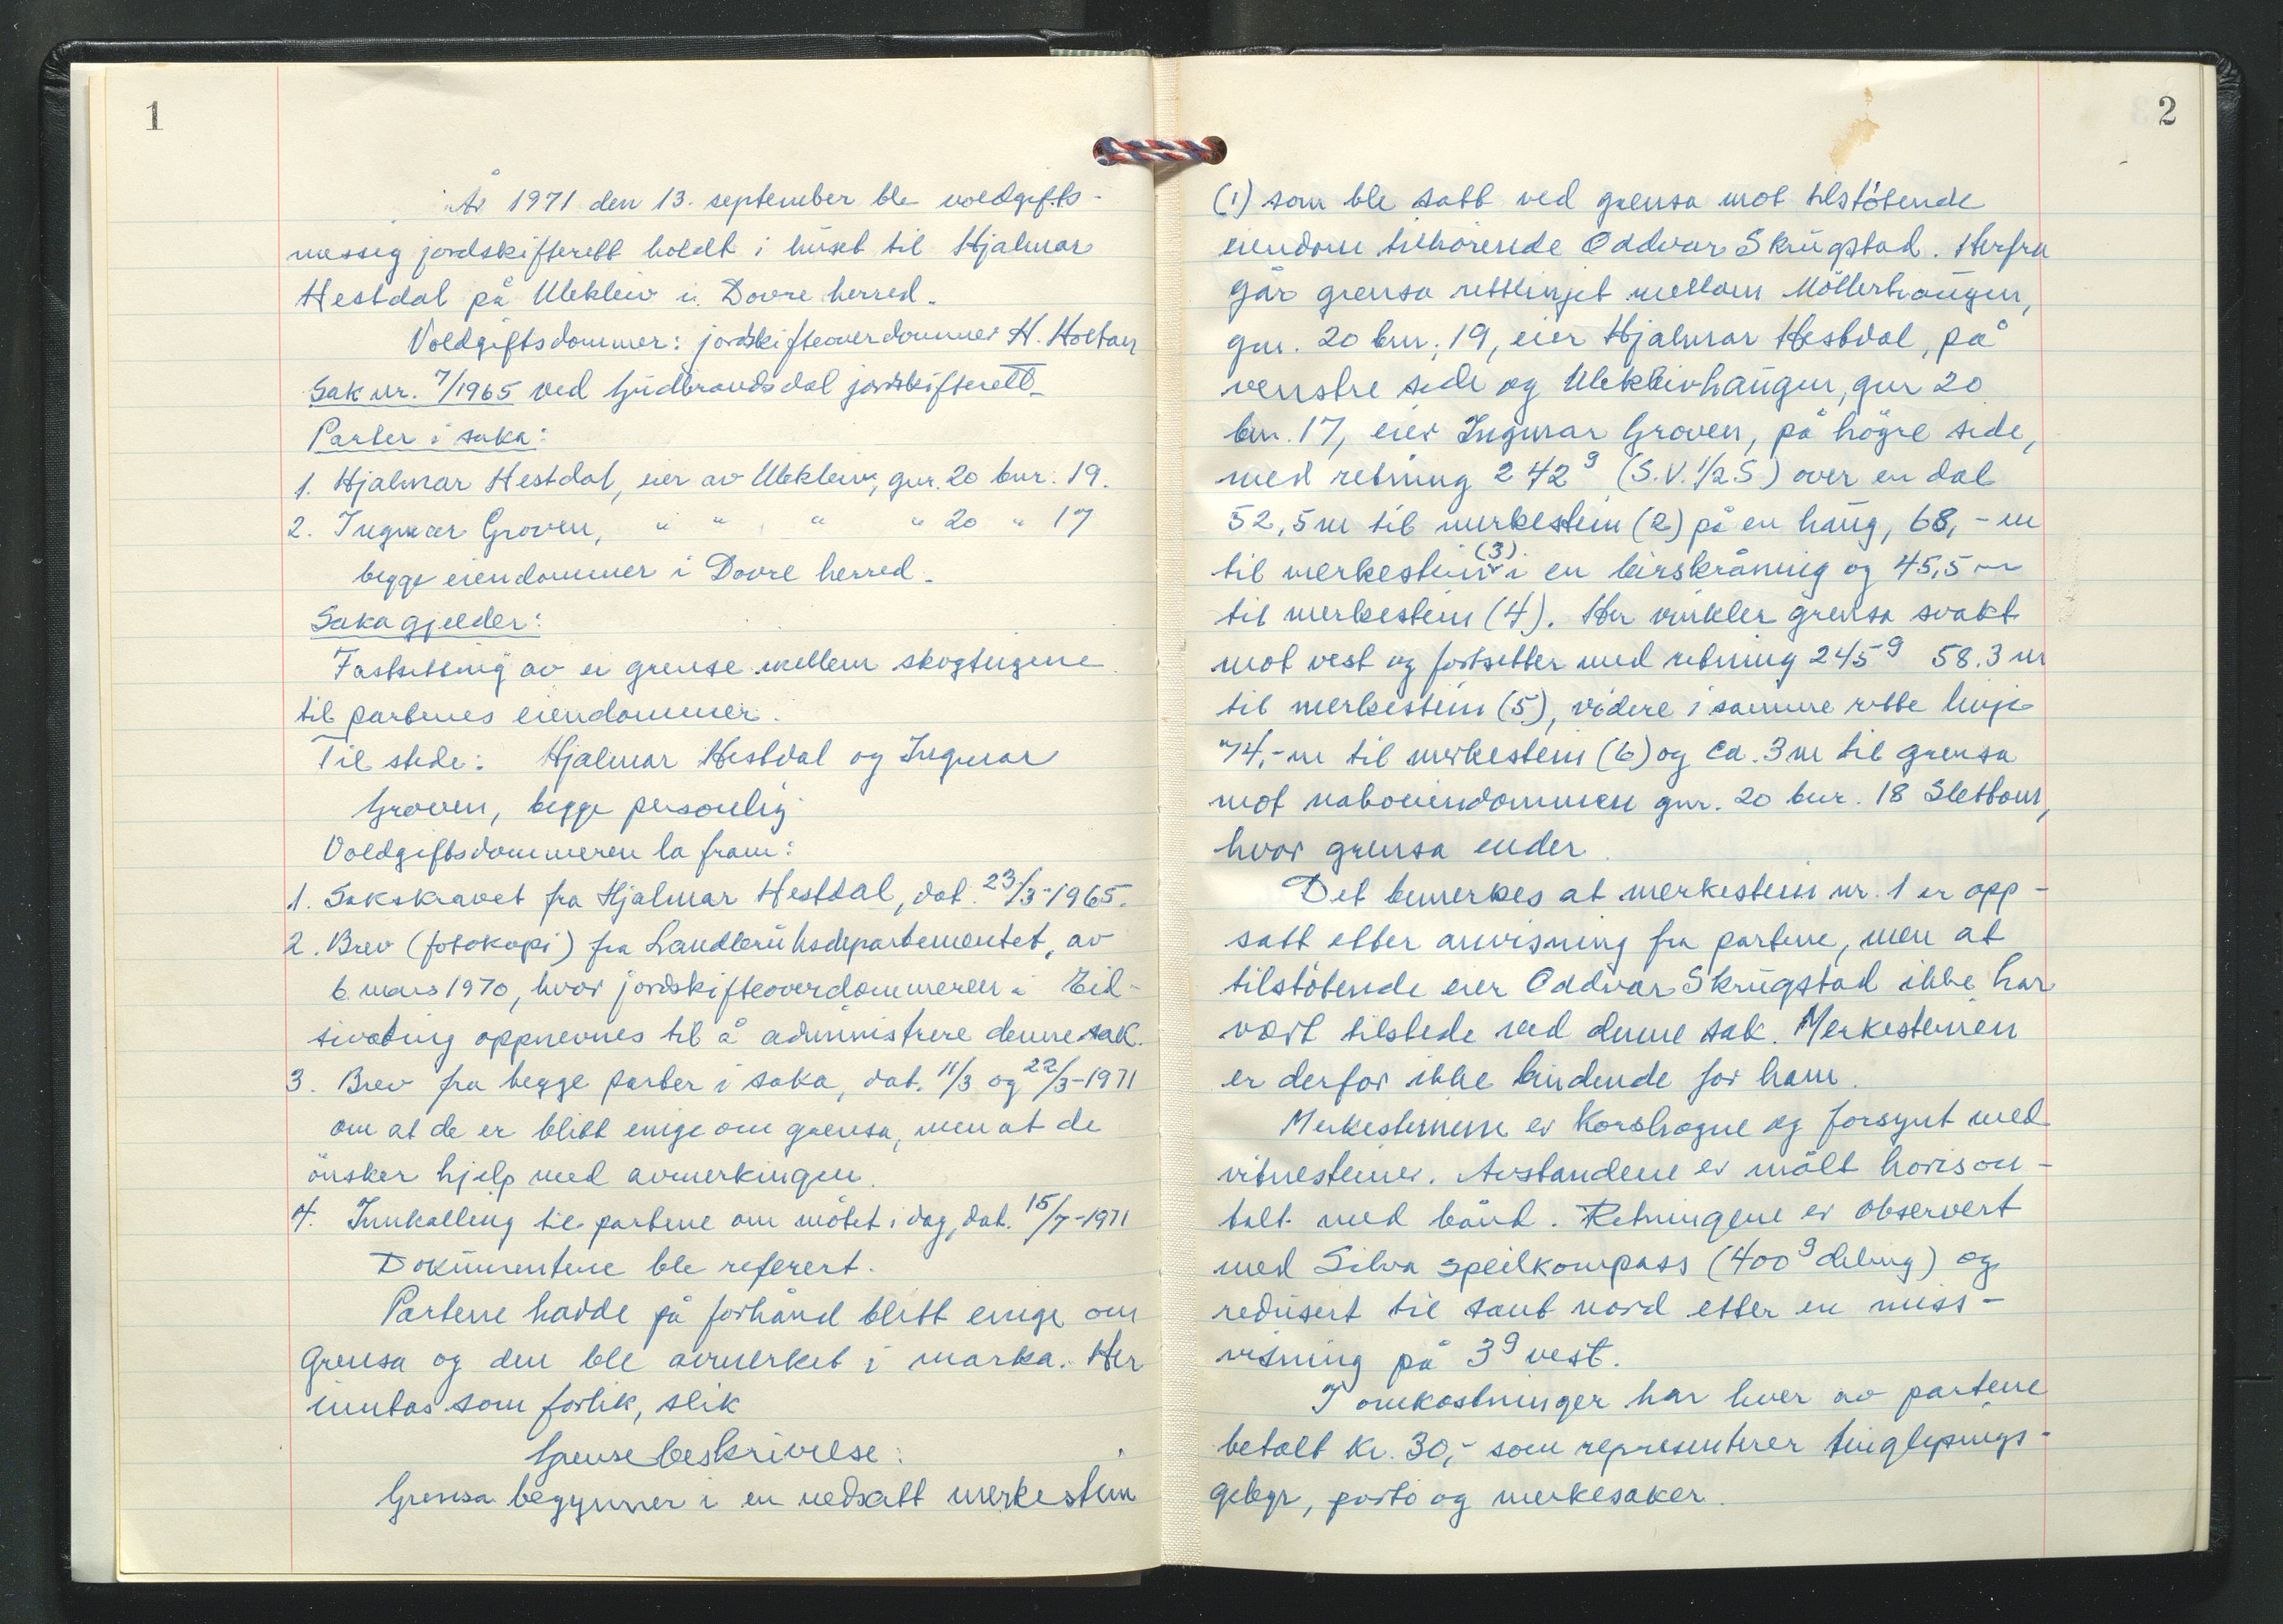 1
År 1971 den 13. september ble voldgifts-
messig jordskifterett holdt i huset til Hjalmar
Hestdal på Ulekleiv i Dovre herred.
Voldgiftsdommer: jordskifteoverdommer H. Holtan
Sak nr. 7/1965 ved Gudbrandsdal jordskifterett.
Parter i saka:
1. Hjalmar Hestdal, eier av Ulekleiv, gnr. 20 bnr. 19.
2. Ingmar Groven, " " " " 20 " 17
begge eiendommer i Dovre herred.
Saka gjelder:
Fastsetting av ei grense mellem skogteigene
til partenes eiendommer.
Til stede: Hjalmar Hestdal og Ingmar
Groven, begge personlig
Voldgiftsdommeren la fram:
1. Sakskravet fra Hjalmar Hestdal, dat. 23/3-1965.
2. Brev (fotokopi) fra Landbruksdepartementet, av
6. mars 1970, hvor jordskifteoverdommeren i Eid-
sivating oppnevnes til å administrere denne sak.
3. Brev fra begge parter i saka, dat. 11/3 og 22/3-1971
om at de er blitt enige om grensa, men at de
önsker hjelp med avmerkingen.
4. Innkalling til partene om mötet i dag, dat. 15/7-1971
Dokumentene ble referert.
Partene hadde på forhånd blitt enige om
grensa og den ble avmerket i marka. Her
inntas som forlik, slik
Grensebeskrivelse:
Grensa begynner i en nedsatt merkestein
2
(1) som ble satt ved grensa mot tilstötende
eiendom tilhörende Oddvar Skrugstad. Herfra
går grensa rettlinjet mellom Möllerhaugen,
gnr. 20 bnr. 19, eier Hjalmar Hestdal, på
venstre side og Ulekleivhaugen, gnr 20
bnr. 17, eier Ingmar Groven, på högre side,
med retning 242g (S.V. 1/2 S) over en dal
52,5 m til merkestein (2) på en haug, 68,- m
til merkestein (3) i en leirskråning og 45,5 m
til merkestein (4). Her vinkler grensa svakt
mot vest og fortsetter med retning 245g 58.3 m
til merkestein (5), videre i samme rette linje
74,- m til merkestein (6) og ca. 3 m til grensa
mot naboeiendommen gnr. 20 bnr. 18
hvor grensa ender.
Det bemerkes at merkestein nr. 1 er opp-
satt etter anvisning fra partene, men at
tilstötende eier Oddvar Skrugstad ikke har
vært tilstede ved denne sak. Merkesteinen
er derfor ikke bindende for ham.
Merkesteinene er korshogne og forsynt med
vitnesteiner. Avstandene er målt horison-
talt med bånd. Retningene er observert
med Silva speilkompass (400g deling) og
redusert til sant nord etter en miss-
visning på 3g vest.
I omkostninger har hver av partene
betalt kr. 30,- som representerer tinglysings-
gebyr, porto og merkesaker.